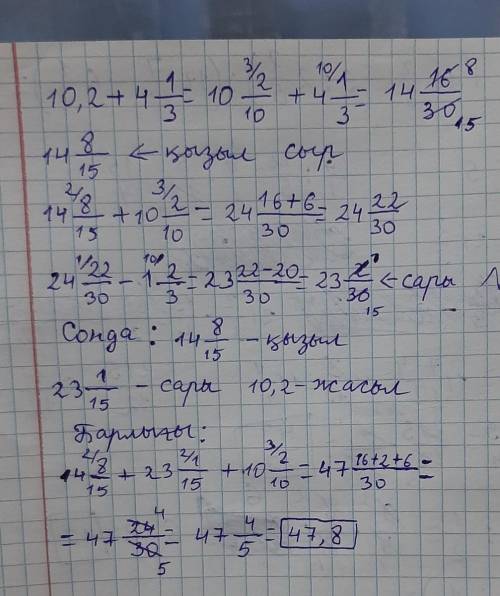 10,2 + 4 1/3 = 10 3/ 2/10 + 4 10/ 1/3 = 14 16/30 8 15
14 8/15 ← қызыл сыр
14 2/ 8/15 + 10 3/ 2/10 = 24 16+6/30 = 24 22/30
24 1/ 22/30 - 1 10/ 2/3 = 23 22-20/30 = 23 2/30 1 15 ← сары
Сонда: 14 8/15 - қызыл
23 1/15 - сары 10,2 - жасыл
Барлығы:
14 2/ 8/15 + 23 2/ 1/15 + 10 3/ 2/10 = 47 16+2+6/30 =
= 47 24/30 4 5 = 47 4/5 = 47,8